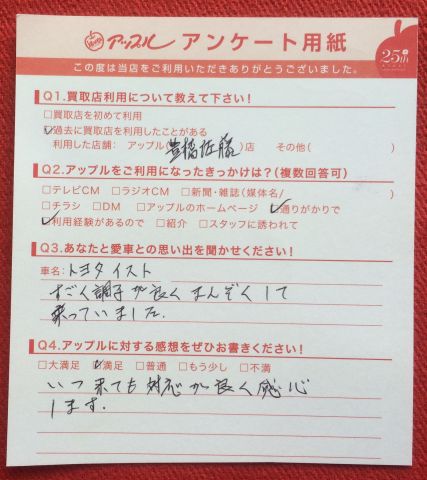 アップル アンケート用紙
25th
この度は当店をご利用いただきありがとうございました。
Q1.買取店利用について教えて下さい!
□買取を初めて利用
☑過去に買取店を利用したことがある
利用した店舗: アップル(豊橋佐藤)店 その他( )
Q2.アップルをご利用になったきっかけは?(複数回答可)
□テレビCM □ラジオCM □新聞・雑誌(媒体名/ )
□チラシ □DM □アップルのホームページ ☑通りがかりで
☑利用経験があるので □紹介 □スタッフに誘われて
Q3.あなたと愛車との思い出を聞かせください!
車名:トヨタ イスト
すごく調子が良くまんぞくして
乗っていました.
Q4.アップルに対する感想をぜひお書きください!
□大満足 ☑満足 □普通 □もう少し □不満
いつ来ても対応が良く感心
します.